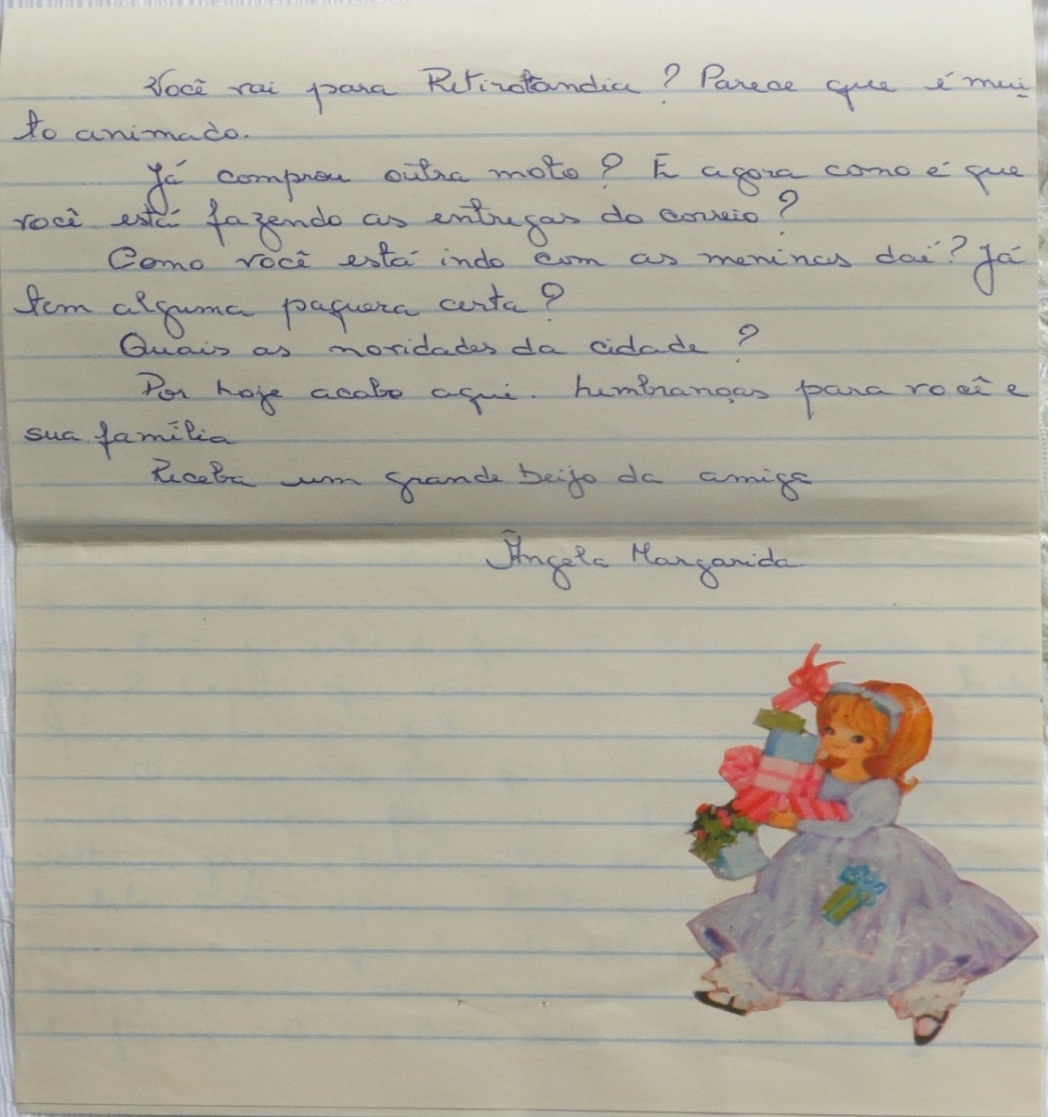 Você vai para Retirolândia? Parece que é mui-
to animado.
Já comprou outra moto? E agora como é que
você está fazendo as entregas do correio?
Como você está indo com as meninas daí? Já
tem alguma paquera certa?
Quais as novidades da cidade?
Por hoje acabo aqui. Lembranças para você e
sua família
Receba um grande beijo da amiga
Ângela Margarida